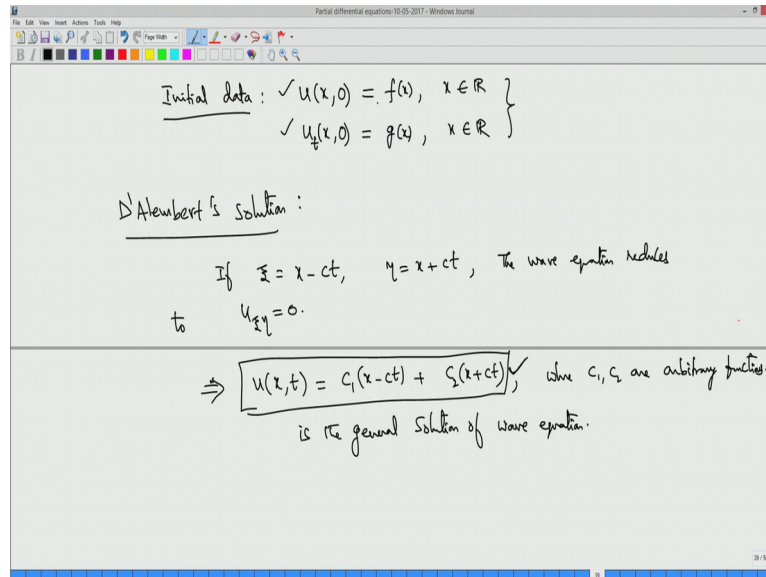 Partial differential equations-10-05-2017 - Windows Journal
File Edit View Insert Actions Tools Help
Page Width
B I
Initial data : ✓ u(x,0) = f(x), x ∈ ℝ }
✓ u_t(x,0) = g(x), x ∈ ℝ
D'Alembert's solution :
If ξ = x - ct, η = x + ct, The wave equation reduces
to u_ξη = 0.
⇒ u(x,t) = C₁(x-ct) + C₂(x+ct) ✓, where C₁, C₂ are arbitrary functions.
is the general solution of wave equation.